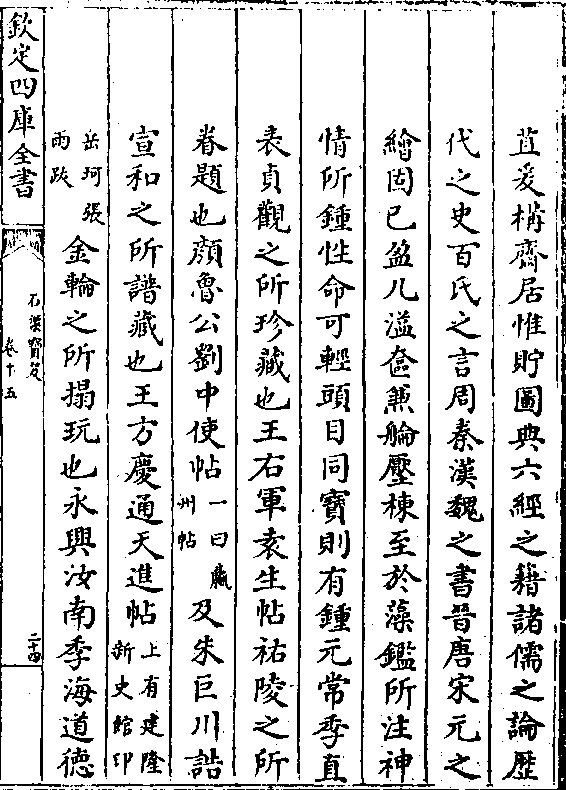 苴爰構齋居惟貯圖典六經之籍諸儒之論歷
代之史百氏之言周秦漢魏之書晉唐宋元之
繪固已盈几溢奩兼艫壓棟至於藻鑑所注神
情所鍾性命可輕頭目同寶則有鍾元常季直
表貞觀之所珍藏也王右軍袁生帖祐陵之所
眷題也顔魯公劉中使帖一曰瀛州帖及朱巨川誥
宣和之所譜藏也王方慶通天進帖上有建隆新史館印
岳珂張雨跋金輪之所搨玩也永興汝南季海道德
欽定四庫全書
石渠寶笈
卷十五
二十四